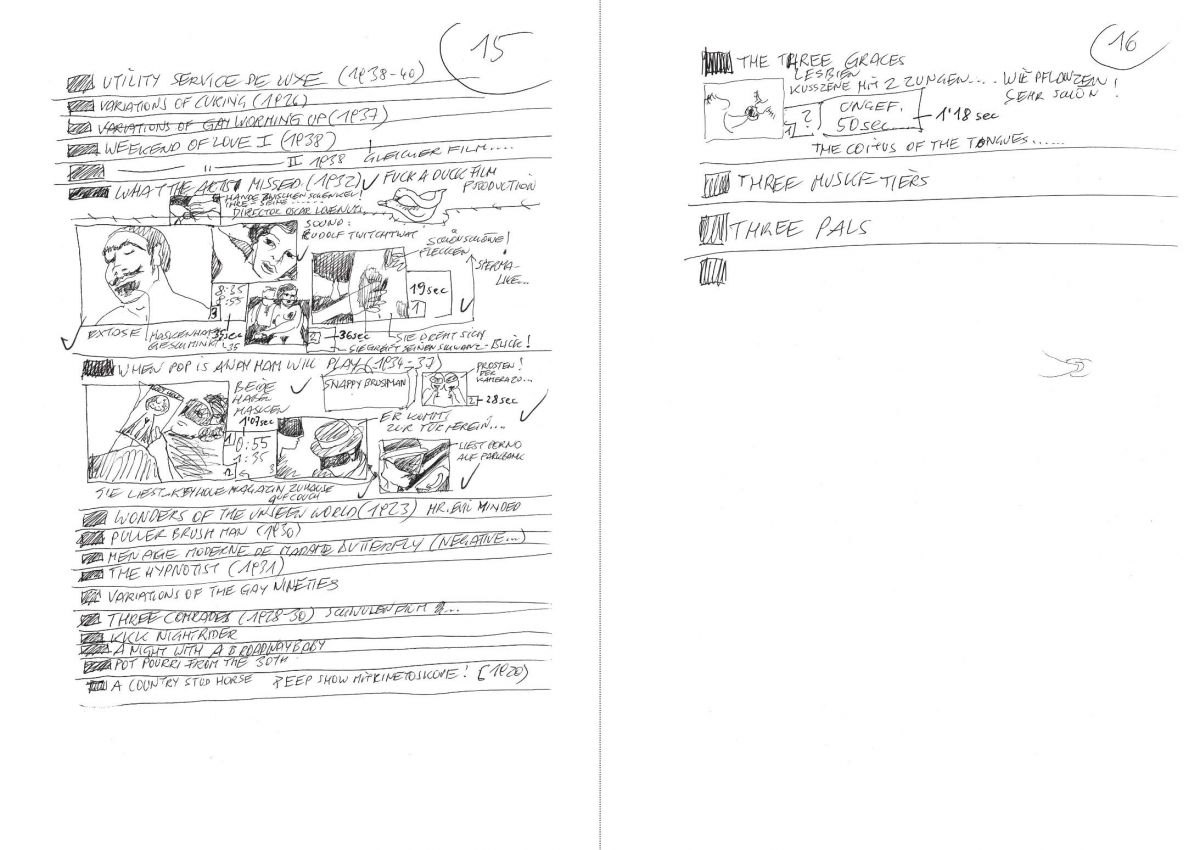 15
UTILITY SERVICE DE LUXE (1938-40)
VARIATIONS OF CURING (1926)
VARIATIONS OF GAY WORMING UP (1937)
WEEKEND OF LOVE I (1938)
" II 1938 GLEICHER FILM....
WHAT THE ARTIST MISSED (1932) FUCK A DUCK FILM
PRODUCTION
HÄNDE ZWISCHEN SCHENKEL!
DIRECTOR OSCAR
SOUND:
RUDOLF TWITCHTWAT
FLECKEN
SPERMA-
LIKE...
19sec
1
8:35
8:55
3
35sec
EXTASE
MASKENHAFT
GESCHMINKT
2
36sec
SIE DREHT SICH
SIE GREIFT SEINEN SCHWANZ - BLICK!
WHEN POP IS AWAY MOM WILL PLAY (1934-37)
BEIDE
HABEN
MASKEN
1'07sec
SNAPPY BRUSHMAN
PROSTEN!
DER
KAMERA ZU...
2 28sec
1
0:55
1:35
3
ER KOMMT
ZUR TÜR HEREIN....
LIEST PORNO
AUF PARKBANK
SIE LIEST KEYHOLE MAGAZIN ZUHAUSE
AUF COUCH
WONDERS OF THE UNSEEN WORLD (1923) MR. EVIL MINDED
PULLER BRUSH MAN (1930)
MENAGE MODERNE DE MADAME BUTTERFLY (NEGATIVE...)
THE HYPNOTIST (1931)
VARIATIONS OF THE GAY NINETIES
THREE COMRADES (1928-30) SCHWULENFILM
KKK NIGHTRIDER
A NIGHT WITH A BROADWAYBABY
POT POURRI FROM THE 30TH
A COUNTRY STUD HORSE PEEP SHOW MIT KINETOSKOPE! (1920)
16
THE THREE GRACES
LESBIEN
KUSSZENE MIT 2 ZUNGEN.... WIE PFLANZEN
SEHR SCHÖN!
1
?
UNGEF.
50sec
1'18sec
THE COITUS OF THE TONGUES......
THREE MUSKETIERS
THREE PALS